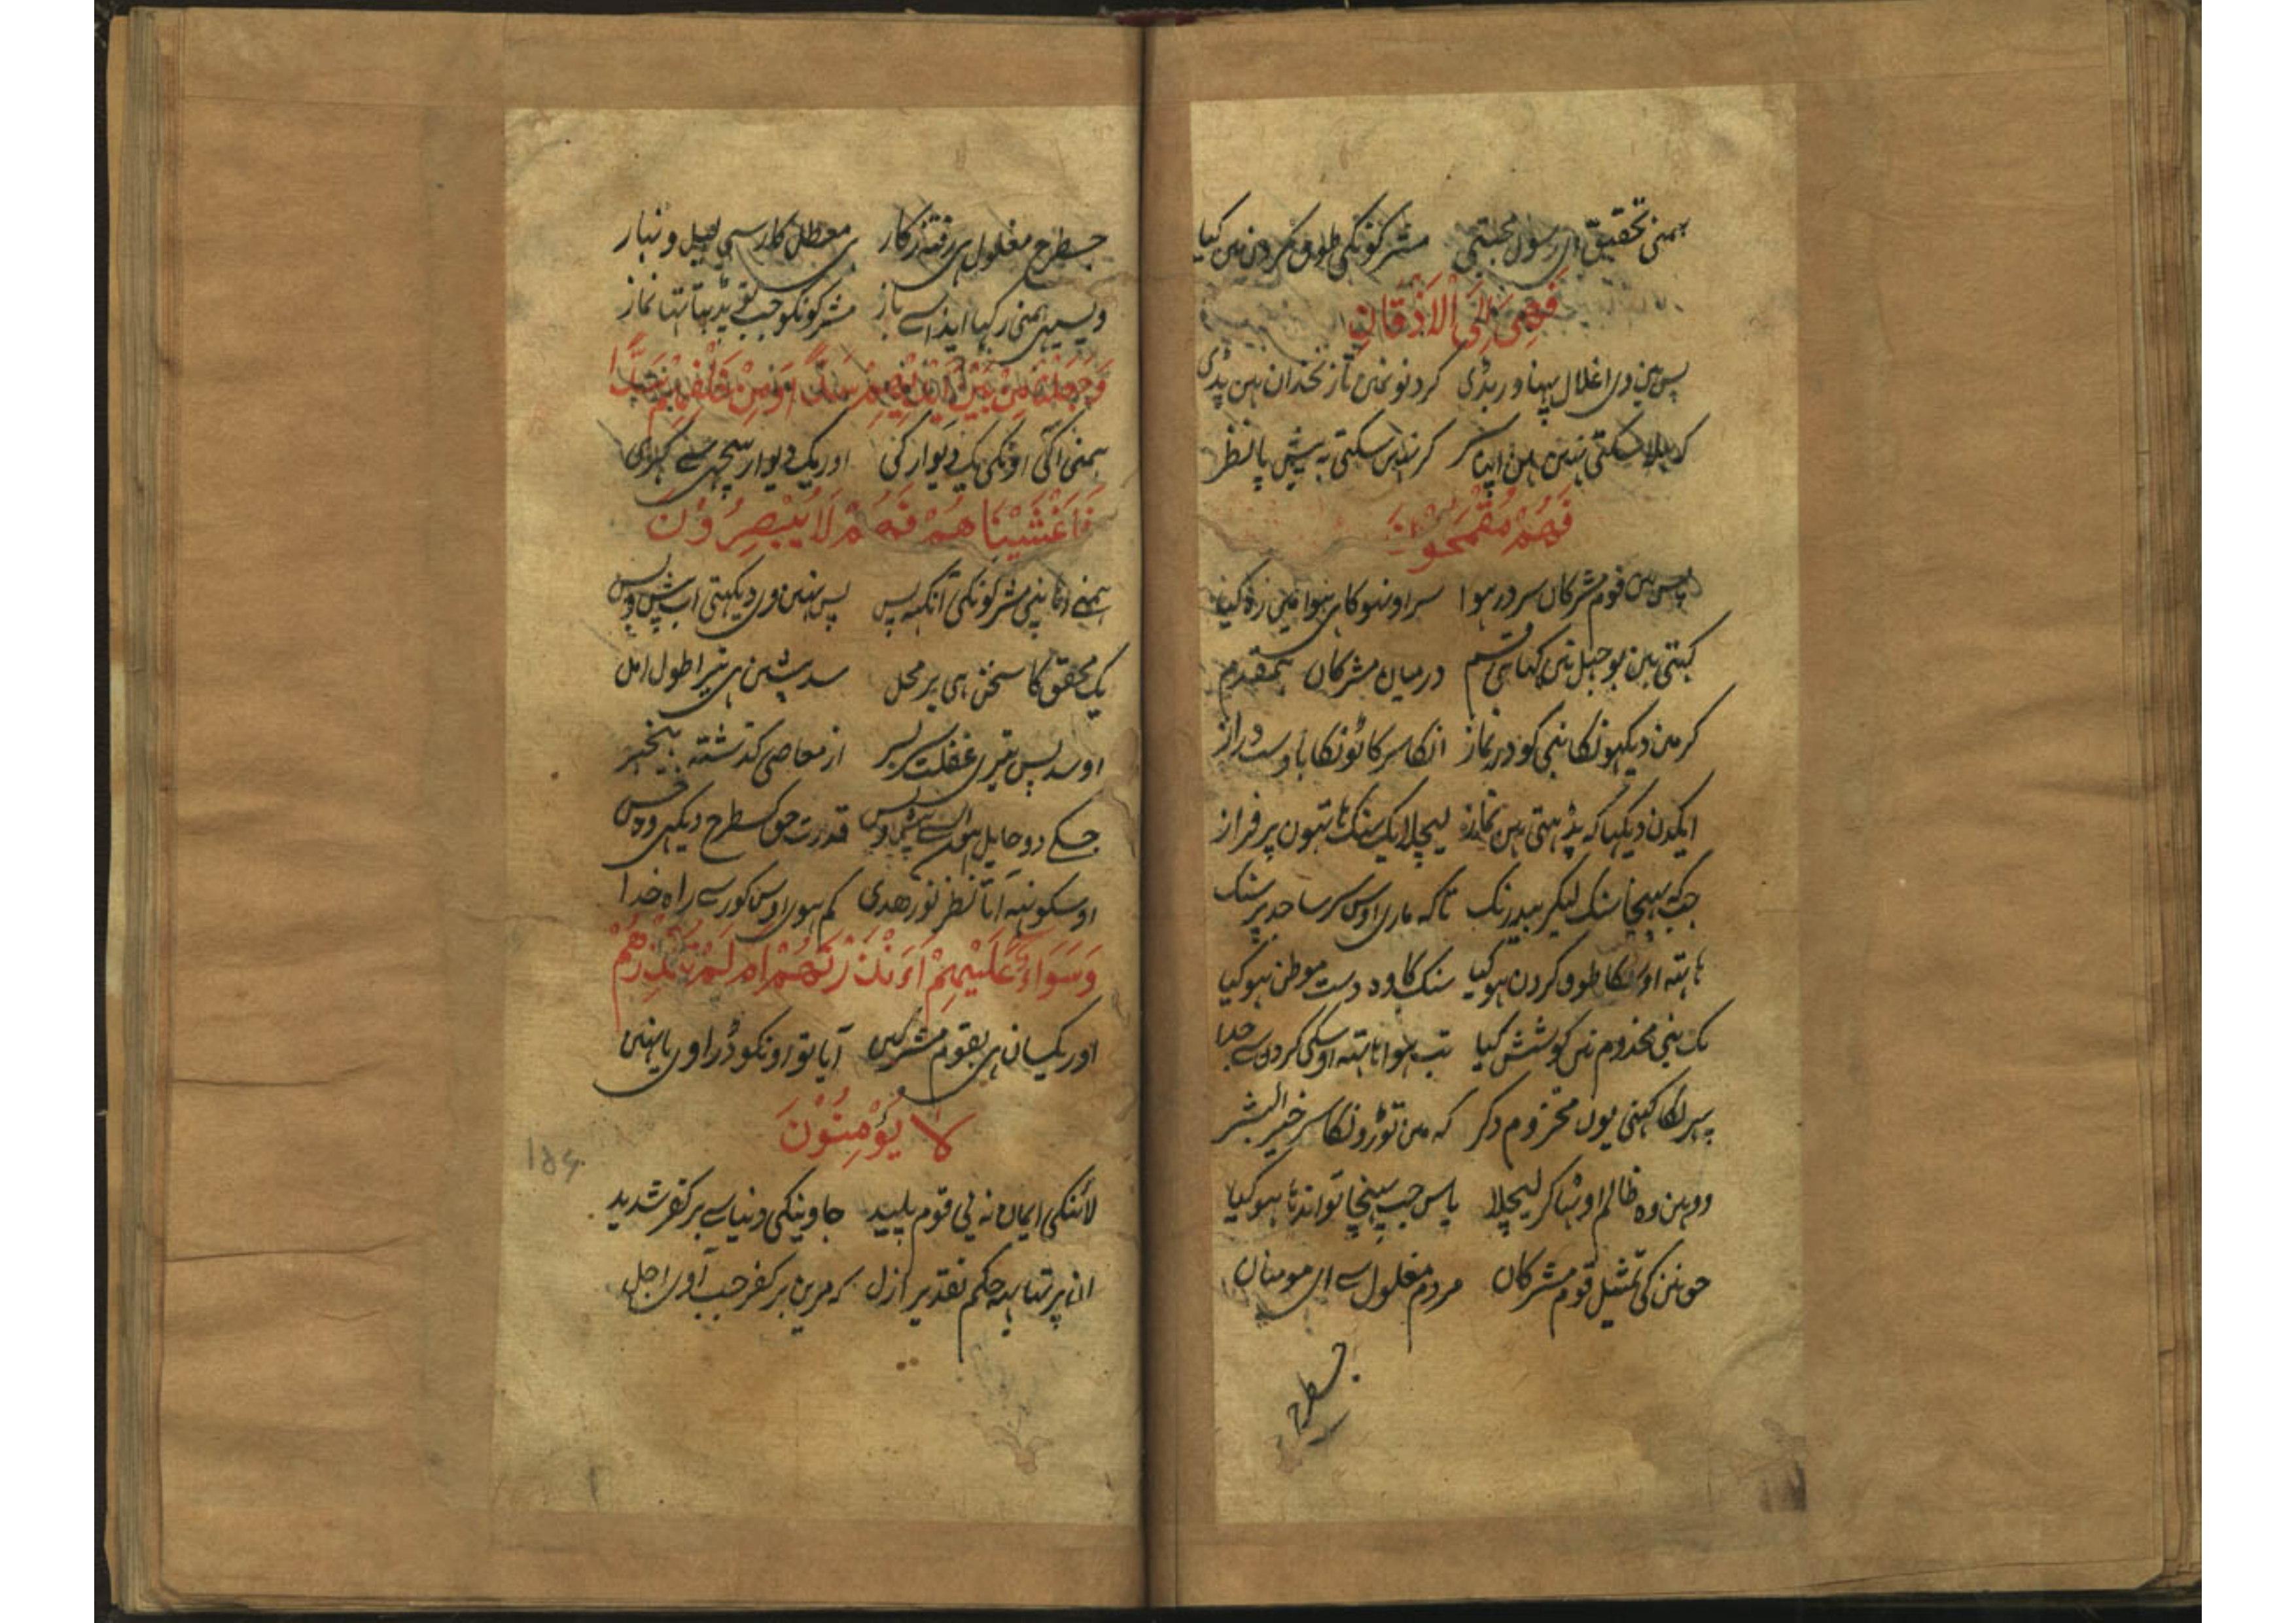 ہمنی تحقیق ای رسول مجتبی مشرکونکی طوق گردن مین کیا
فَهِیَ اِلَی الْاَذْقَانِ
پس ہین وی اغلال پہناور بڈی گردنونمین تا زنخدان ہین پڈی
کہ ہلا سکتی نہین ہین اپنا سر کر نہین سکتی بہ پیش پا نظر
فَهُمْ مُقْمَحُوْنَ
پس ہین قوم مشرکان سر در ہوا سر اونہو کا ہی ہوا مین
کہتی ہین بوجہل نین کہا ہی قسم درمیان مشرکان
کر مین دیکہونکا نبی کو در نماز انکا سر کاٹونکا با دست دراز
ایکدن دیکہا کہ پڑہتی ہین نماز لیچلا یک سنک ہاتہون پر فراز
جبکہ پہنچا سنک لیکر بیدرنک تاکہ ماری اوس سر ساجد پر سنک
ہاتہ اوسکا طوق گردن ہو کیا سنک کا وہ دست موطن ہو کیا
یک بنی مخذوم نین کوشش کیا تب ہوا ہاتہ اوسکی گردن سے جدا
پہر لکا کہنی یون مخزوم دکر کہ مین توڑونکا سر خیر البشر
ووہین وہ ظالم اوٹہا کر لیچلا پاس جب پہنچا تو اندہا ہو کیا
حق نین کی تمثیل قوم مشرکان مردم مغلول سے ای مومنان
جسطرح
جسطرح مغلول ہی رفتہ ز کار ہی معطل کار سی لیل و نہار
ویسیہی ہمنی رکہا ایذا سے باز مشرکونکو جب نبی پڑہتا تہا نماز
وَجَعَلْنَا مِنْ بَیْنِ اَیْدِیْهِمْ سَدًّا وَمِنْ خَلْفِهِمْ سَدًّا
ہمنی آکی اونکی یک دیوار کی اور یک دیوار پیچہی سے کہڑی
فَاَغْشَیْنَاهُمْ فَهُمْ لَا یُبْصِرُوْنَ
ہمنے ڈہانپی مشرکونکی آنکہہ پس پس نہین وی دیکہتی اب پیش و پس
یک محقق کا سخن ہی بر محل سد پیشین ہی تیرا طول امل
اور سد پس تیری غفلت بسر از معاصی گذشتہ بیخبر
جسکے دو حایل ہون ایسے پیش و پس قدرت حق کسطرح دیکہی وہ خس
اوسکو نہ آتا نظر نور هدی کم ہو اوس کور سے راہ خدا
وَسَوَاءٌ عَلَیْهِمْ اَءَنْذَرْتَهُمْ اَمْ لَمْ تُنْذِرْهُمْ
اور یکسان ہی بقوم مشرکین آیا تو اونکو ڈراوی یا نہین
لَا یُؤْمِنُوْنَ
لائنکی ایمان نہ یی قوم پلید جاوینکی دنیا سے بر کفر شدید
ان پر تہا یہہ حکم تقدیر ازل کہ مرین بر کفر جب آوی اجل